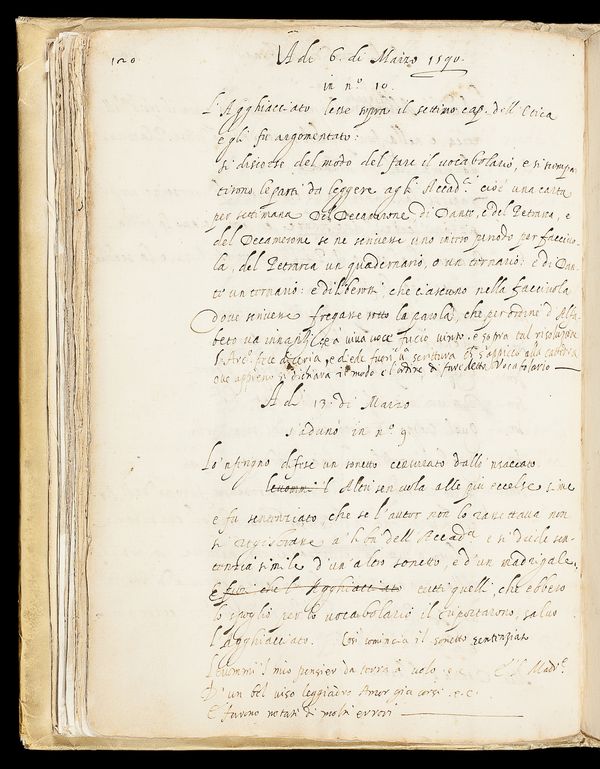 120
A di 6. di Marzo 1590.
in n.º 10.
L'Agghiacciato lesse sopra il settimo cap. dell'Etica
e gli fu argomentato:
si discorse del modo del fare il vocabolario, e si scompar
tirono le parti da leggere agli Accad.ci cioè una carta
per settimana del Decamerone di Dante, e del Petrarca, e
del Decamerone se ne scrivesse uno intero periodo per facciuo
la, del Petrarca un quadernario, o un ternario: e di Dan
te un ternario: e diliberossi, che ciascuno nella facciuola
dove scriveva fregasse sotto la parola, che per ordine d'Alfa
beto va innanzi, e a viva voce fucio vinto. e sopra tal
l'Arc.º fece diceria, e diede fuori una scrittura
ove appieno si dichiara il modo e l'ordine di fare detto Vocabolario
A di 13. di Marzo
s'adunò in n.º 9
Lo 'nferigno difese un sonetto censurato dallo 'nsaccato
levommi l'Altri sen vola alle più eccelse cime
e fu sentenziato, che se l'autor non lo rassettava non
si registrasse a libri dell'Accad.a e si diede sen
tenzia simile d'un altro sonetto, e d'un madrigale.
E fuor che l'Agghiacciato tutti quelli, che ebbero
lo spoglio per lo vocabolario il riportarono, salvo
l'agghiacciato. Così comincia il sonetto sentenziato
Levommi l mio pensier da terra a volo. e c. E 'l Madri.e
Di un bel viso leggiadro Amor già corsi. e. c.
E furono notati di molti errori